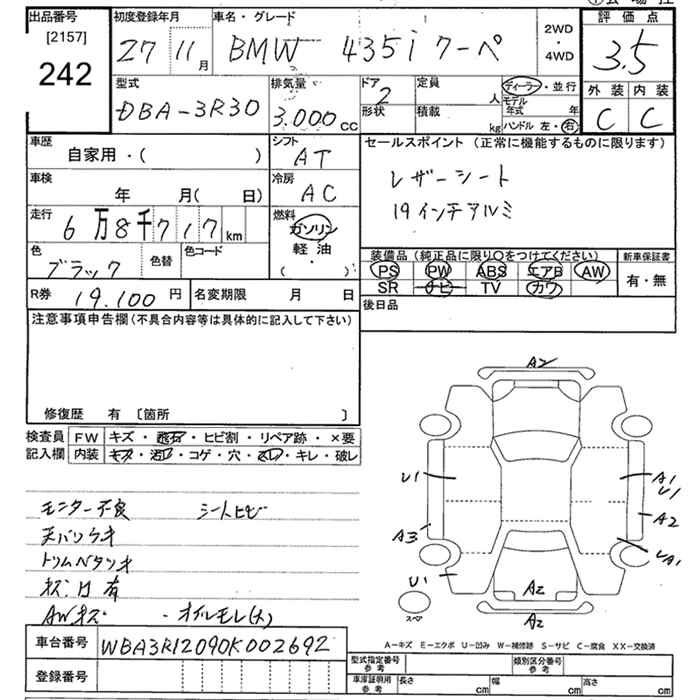 出品番号
[2157]
242
初度登録年月
27 11月
車名・グレード
BMW 435i クーペ
2WD
・
4WD
評価点
3.5
外装 内装
C C
型式
DBA-3R30
排気量
3.000cc
ドア
2
形状
定員
人
積載
kg
ディーラー・並行
モデル年式 年
ハンドル 左・右
車歴
自家用・( )
シフト
AT
車検
年 月( 日)
冷房
AC
走行
6万8千717km
燃料
ガソリン
軽油
( )
色
ブラック
色替
色コード
R券 19.100円
名変期限 月 日
セールスポイント (正常に機能するものに限ります)
レザーシート
19インチアルミ
装備品 (純正品に限り○をつけてください)
PS PW ABS エアB AW
SR ナビ TV カワ
新車保証書
有・無
後日品
注意事項申告欄(不具合内容等は具体的に記入して下さい)
修復歴 有 〔箇所 〕
検査員
記入欄
FW キズ・飛石・ヒビ割・リペア跡・×要
内装 キズ・汚レ・コゲ・穴・スレ・キレ・破レ
モニター不良 シートヒビ
天バリウキ
トリムベタツキ
AWキズ ・オイルモレ(大)
車台番号 WBA3R12090K002692
登録番号
A2
U1
A1
U1
A3
A2
U1
A2
A2
スペ
A-キズ E-エクボ U-凹み W-補修跡 S-サビ C-腐食 XX-交換済
型式指定番号
参考
類別区分番号
参考
車庫証明用
参考
長さ cm 幅 cm 高さ cm